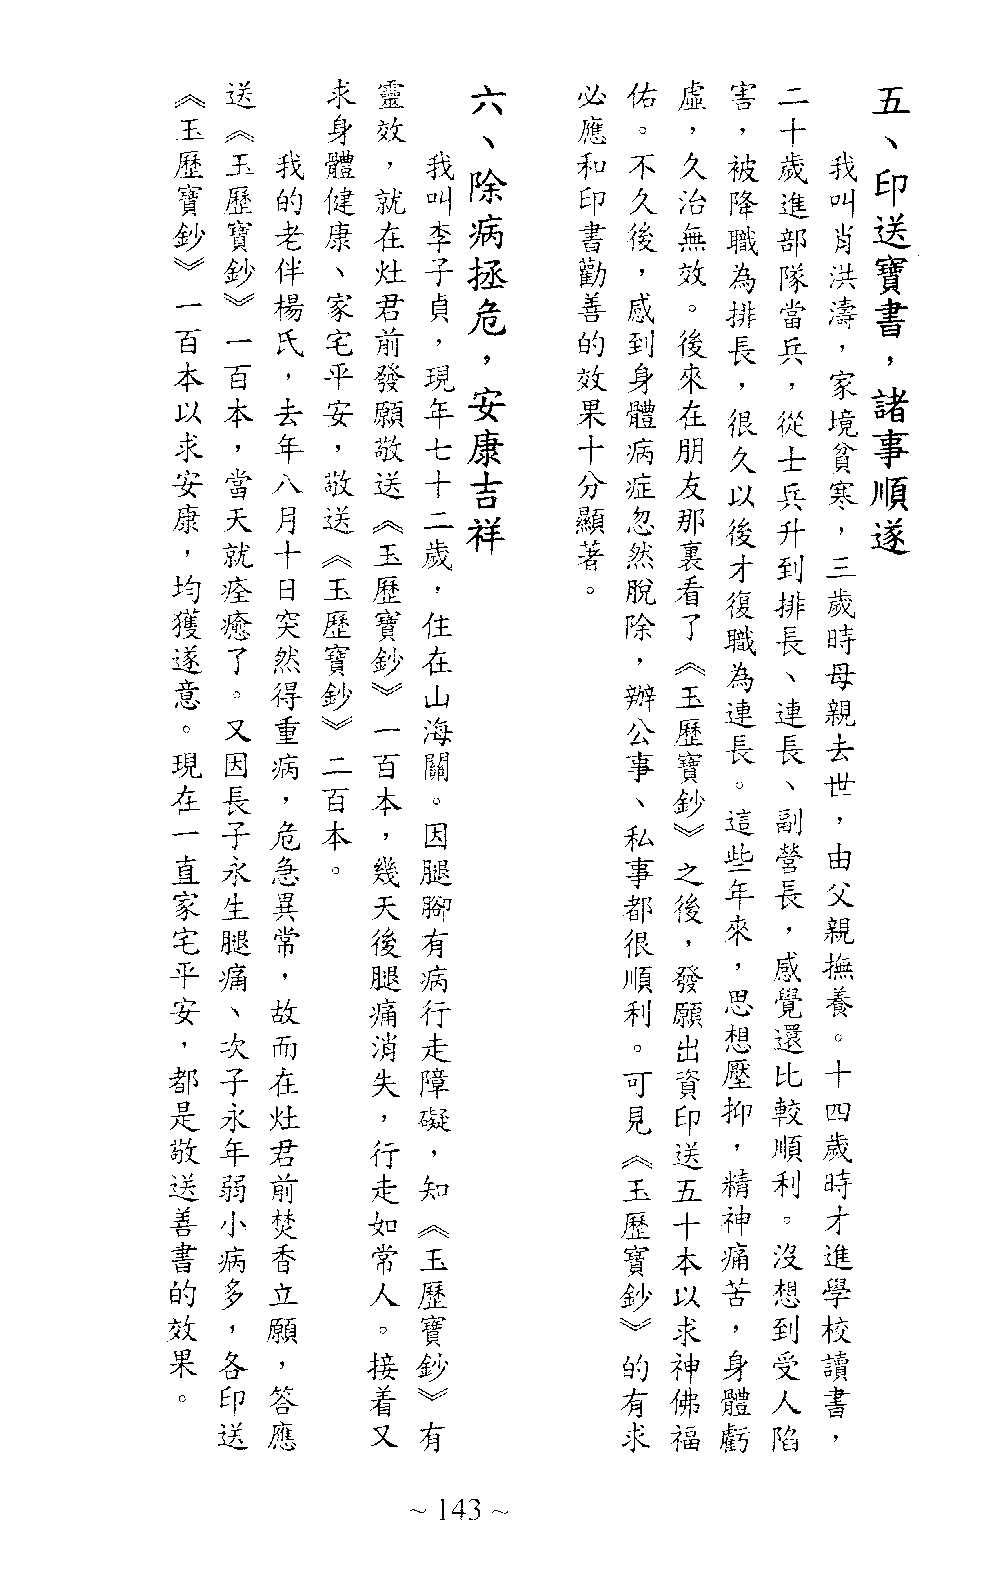 五、印送寶書，諸事順遂
我叫肖洪濤，家境貧寒，三歲時母親去世，由父親撫養。十四歲時才進學校讀書，
二十歲進部隊當兵，從士兵升到排長、連長、副營長，感覺還比較順利。沒想到受人陷
害，被降職為排長，很久以後才復職為連長。這些年來，思想壓抑，精神痛苦，身體虧
虛，久治無效。後來在朋友那裏看了《玉歷寶鈔》之後，發願出資印送五十本以求神佛福
佑。不久後，感到身體病症忽然脫除，辦公事、私事都很順利。可見《玉歷寶鈔》的有求
必應和印書勸善的效果十分顯著。
六、除病拯危，安康吉祥
我叫李子貞，現年七十二歲，住在山海關。因腿腳有病行走障礙，知《玉歷寶鈔》有
靈效，就在灶君前發願敬送《玉歷寶鈔》一百本，幾天後腿痛消失，行走如常人。接着又
求身體健康、家宅平安，敬送《玉歷寶鈔》二百本。
我的老伴楊氏，去年八月十日突然得重病，危急異常，故而在灶君前焚香立願，答應
送《玉歷寶鈔》一百本，當天就痊癒了。又因長子永生腿痛、次子永年弱小病多，各印送
《玉歷寶鈔》一百本以求安康，均獲遂意。現在一直家宅平安，都是敬送善書的效果。
~ 143 ~